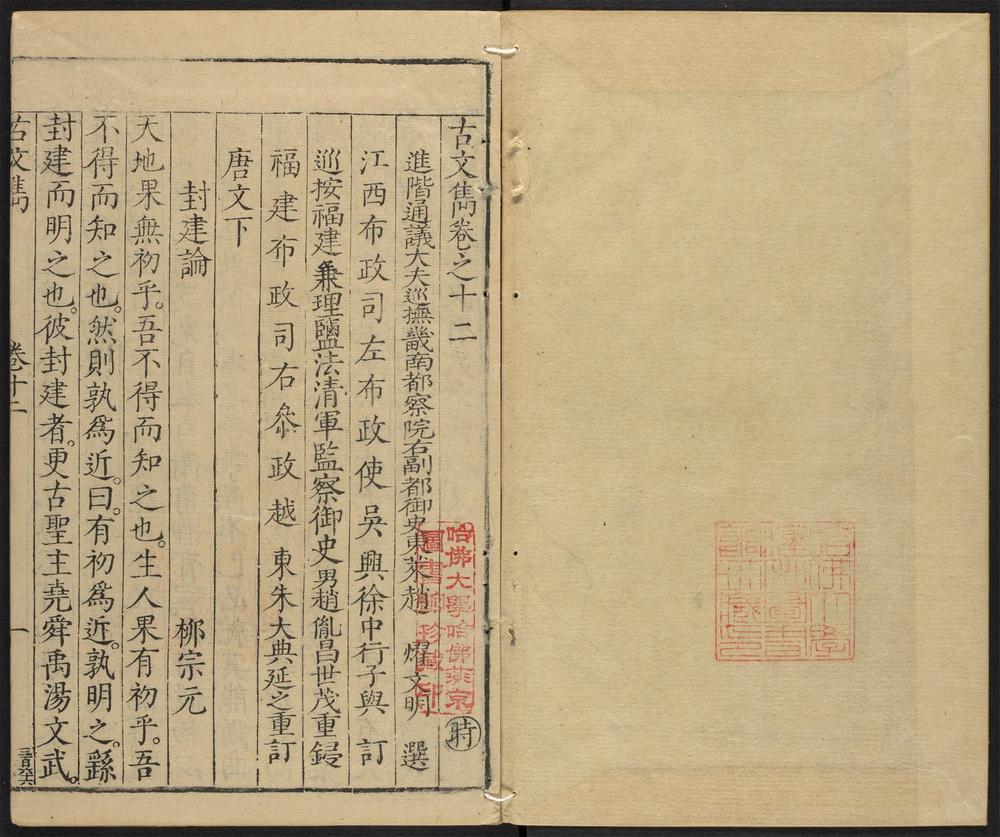 古文雋卷之十二
時
進階通議大夫巡撫畿南都察院右副都御史東萊趙 燿文明 選
江西布政司左布政使吳興徐中行子與 訂
巡按福建兼理鹽法清軍監察御史男趙胤昌世茂重鋟
福建布政司右叅政越東朱大典延之重訂
唐文下
封建論 柳宗元
天地果無初乎。吾不得而知之也。生人果有初乎。吾
不得而知之也。然則孰爲近。曰。有初爲近。孰明之。繇
封建而明之也。彼封建者。更古聖王堯舜禹湯文武。
古文雋 卷十二 一
哈佛大學哈佛燕京
圖書館珍藏印